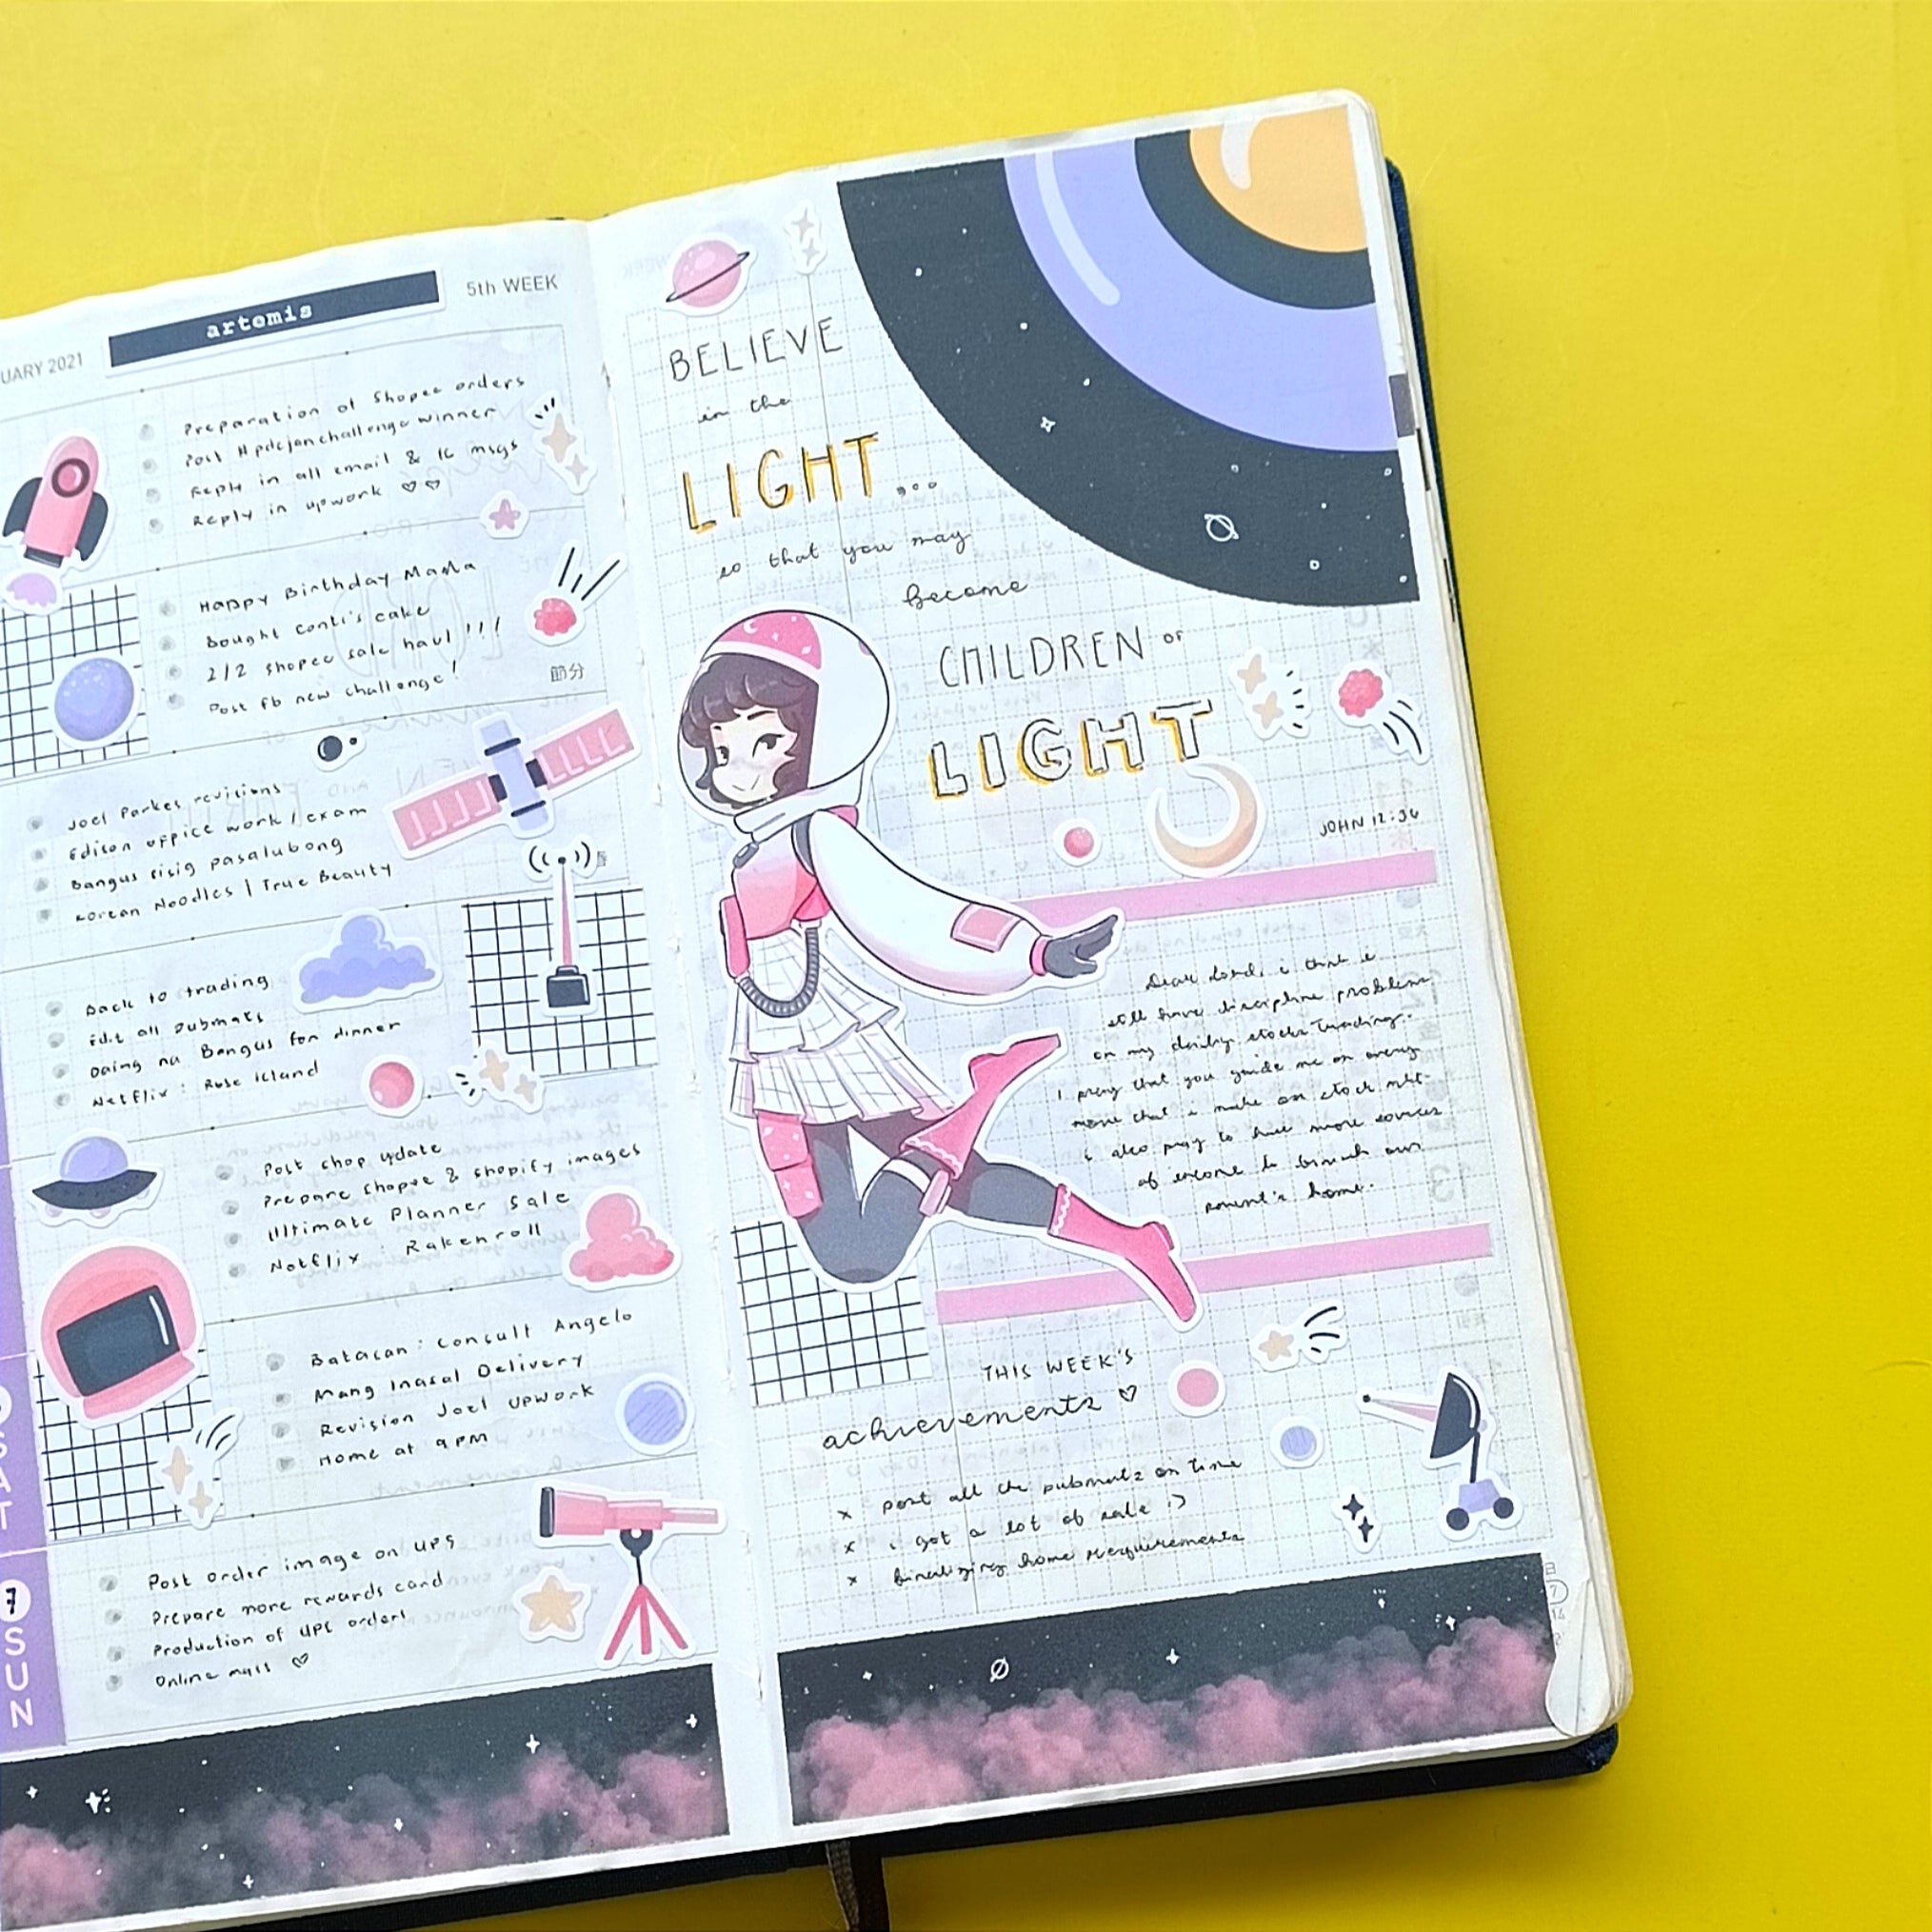 UARY 2021
artemis
5th WEEK
Preparation of Shopee orders
Post #pdcjanchallenge winner
Reply in all email & IG msgs
Reply in upwork ♡♡
Happy Birthday Mama
Bought Conti's cake
2/2 Shopee sale haul!!!
Post fb new challenge!
節分
Joel Parkes revisions
Edison office work / exam
Bangus sisig pasalubong
Korean Noodles | True Beauty
Back to trading
Edit all Pubmats
Daing na Bangus for dinner
Netflix : Rose Island
Post shop update
Prepare Shopee & Shopify images
Ultimate Planner Sale
Netflix : Rakenroll
Batacan : Consult Angelo
Mang Inasal Delivery
Revision Joel Upwork
Home at 9PM
SAT
Post order image on UPS
Prepare more rewards card
Production of UPS orders
Online mass ♡
7
SUN
BELIEVE
in the
LIGHT...
so that you may
become
CHILDREN OF
LIGHT
JOHN 12:36
Dear Lord, i think i
still have discipline problem
on my daily stocks trading.
I pray that you guide me on every
move that i make on stock mkt.
i also pray to have more sources
of income to finish our
parent's home.
THIS WEEK'S
achievements ♡
x post all the pubmats on time
x i got a lot of sale :)
x finalizing home requirements
日
7
14